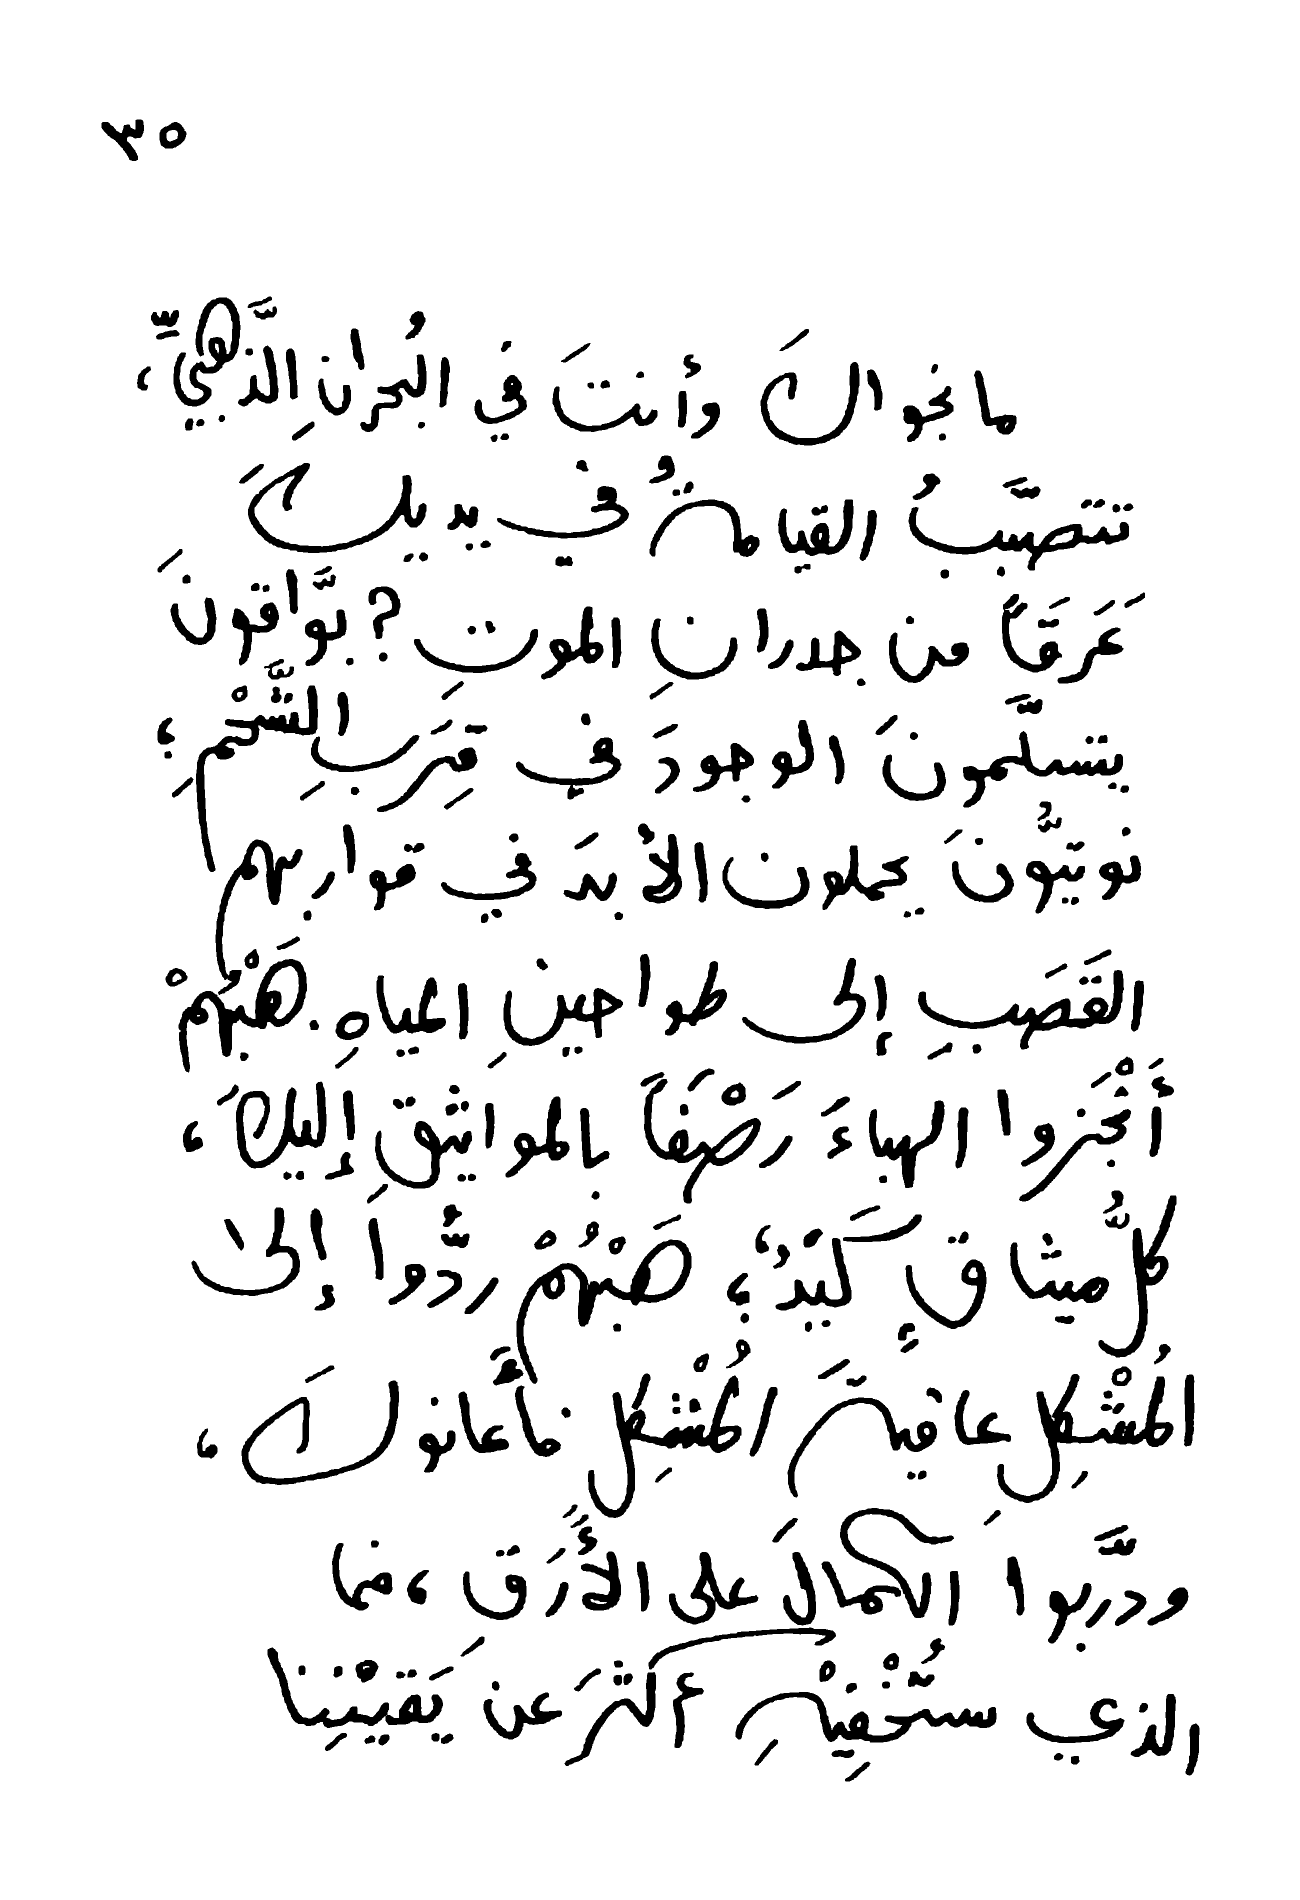 ٣٥
ما نجواك َ وأنتَ في البُحرانِ الذَّهبيِّ،
تتصبَّبُ القيامةُ في يديكَ
عَرَقَاً من جدرانِ الموت؟ بوَّاقونَ
يتسلَّمونَ الوجودَ في قِرَبِ الشَّحْمِ؛
نوتيُّونَ يحملون الأبدَ في قواربهم
القَصَبِ إلى طواحينِ المياهِ. هَبْهُمْ
أَنْجَزوا الهباءَ رَصْفَاً بالمواثيقِ إليكَ،
كلُّ ميثاقٍ كَيْدٌ؛ هَبْهُمْ ردُّوا إلى
المُشْكِلِ عافيةَ المُشْكِلِ فما عانوكَ،
ودرَّبوا الكمالَ على الأَرَقِ، فما
الذي ستُخْفِيْهِ أكثرَ عن يَقيْنِنا